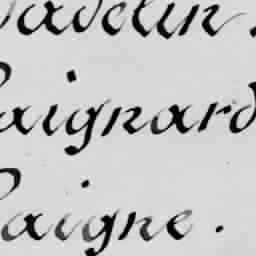 adelin.
aignard
aigne.